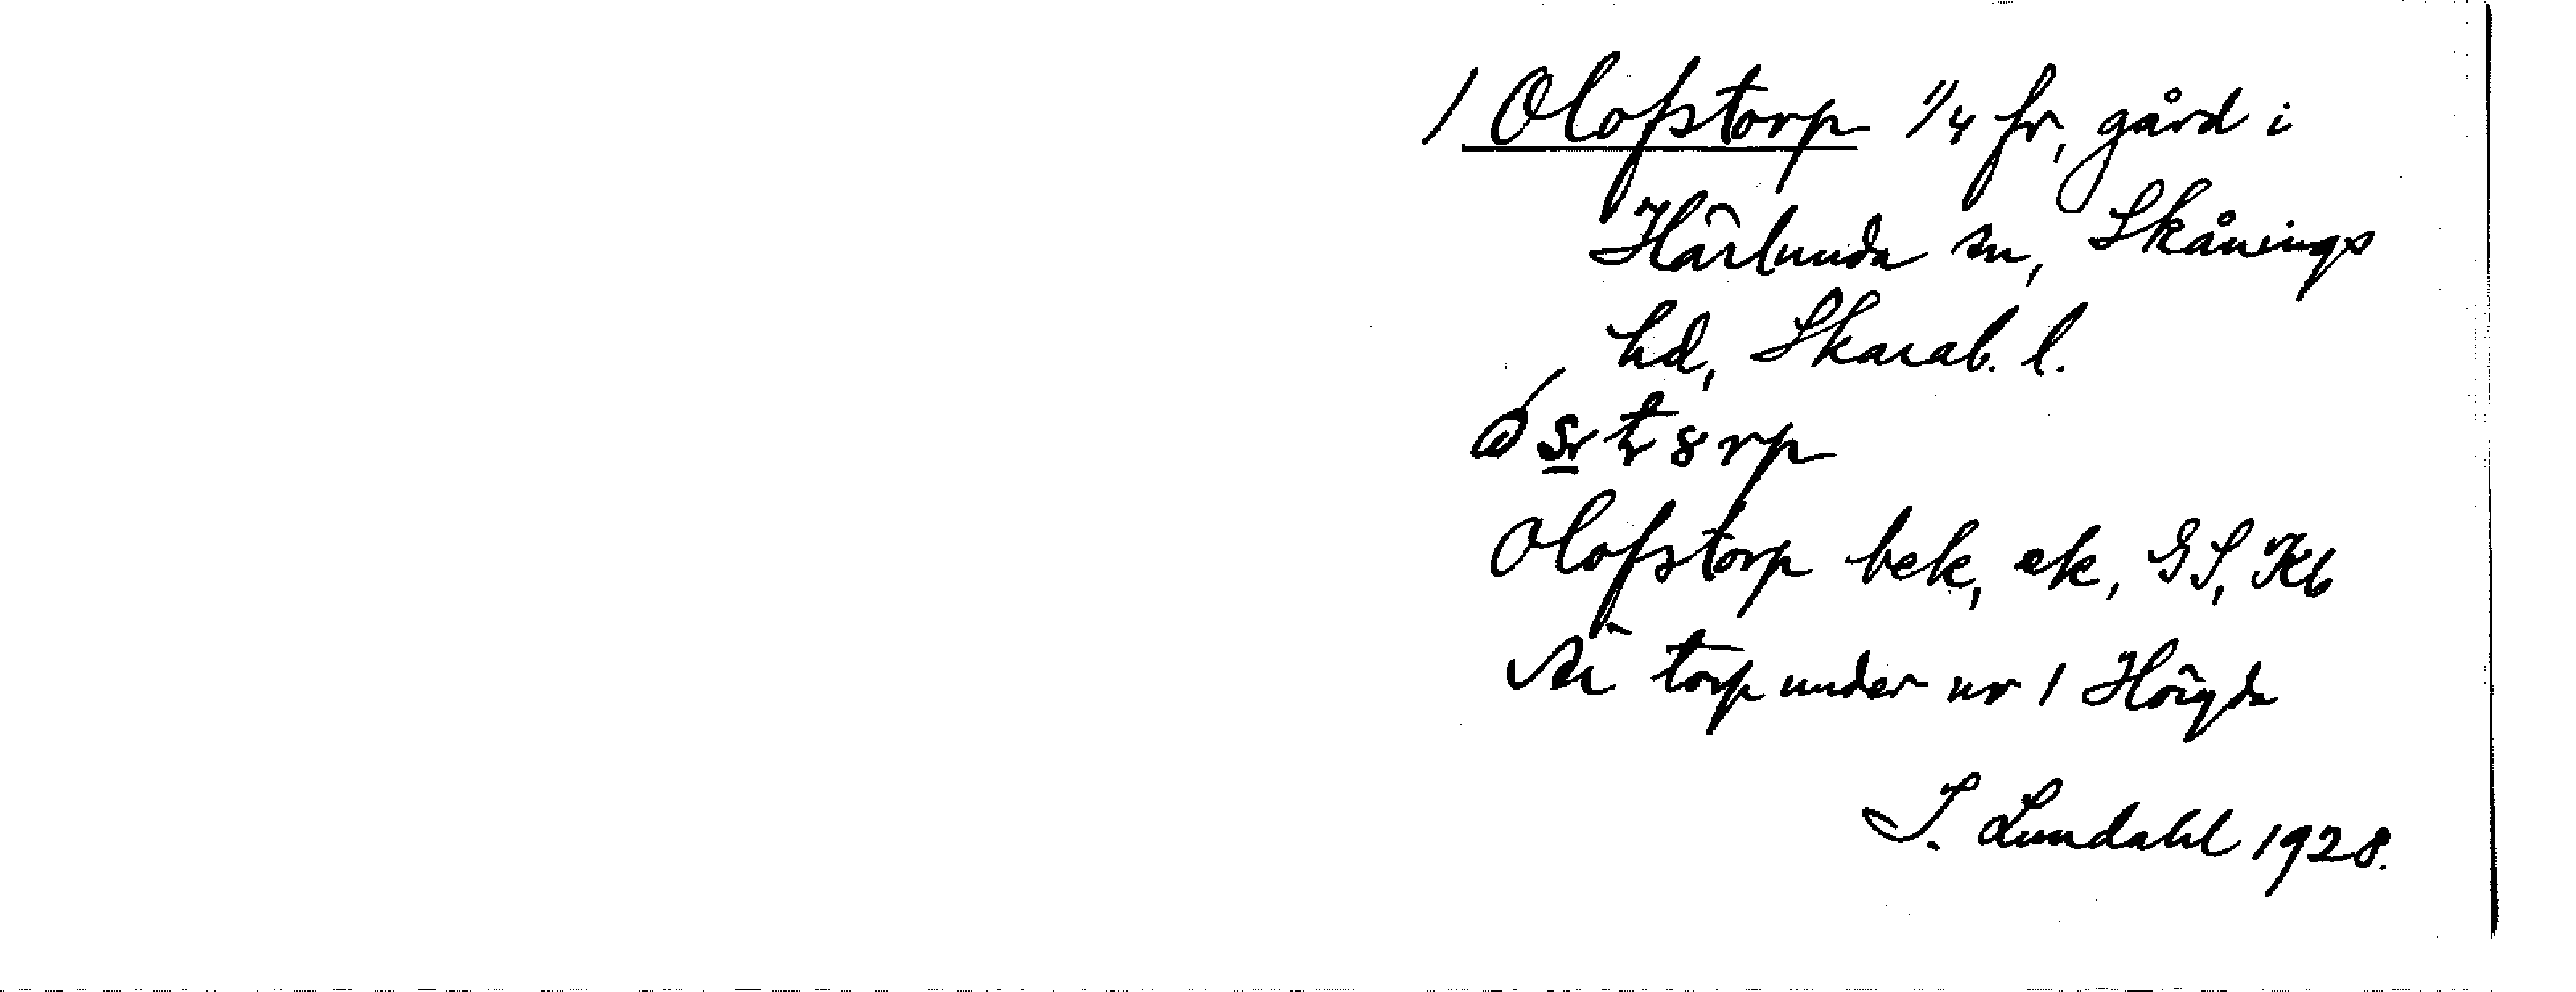 1 Olofstorp 1/4 fr, gård i
Härlunda sn, Skånings
hd, Skarab. l.
Olofstorp bek, ek, GS, Kb
torp under nr 1 Höigda
I. Lundahl 1928.